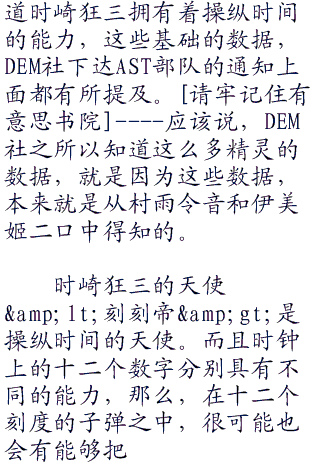 道时崎狂三拥有着操纵时间
的能力，这些基础的数据，
DEM社下达AST部队的通知上
面都有所提及。[请牢记住有
意思书院]----应该说，DEM
社之所以知道这么多精灵的
数据，就是因为这些数据，
本来就是从村雨令音和伊美
姬二口中得知的。
时崎狂三的天使
&amp;lt;刻刻帝&amp;gt;是
操纵时间的天使。而且时钟
上的十二个数字分别具有不
同的能力，那么，在十二个
刻度的子弹之中，很可能也
会有能够把